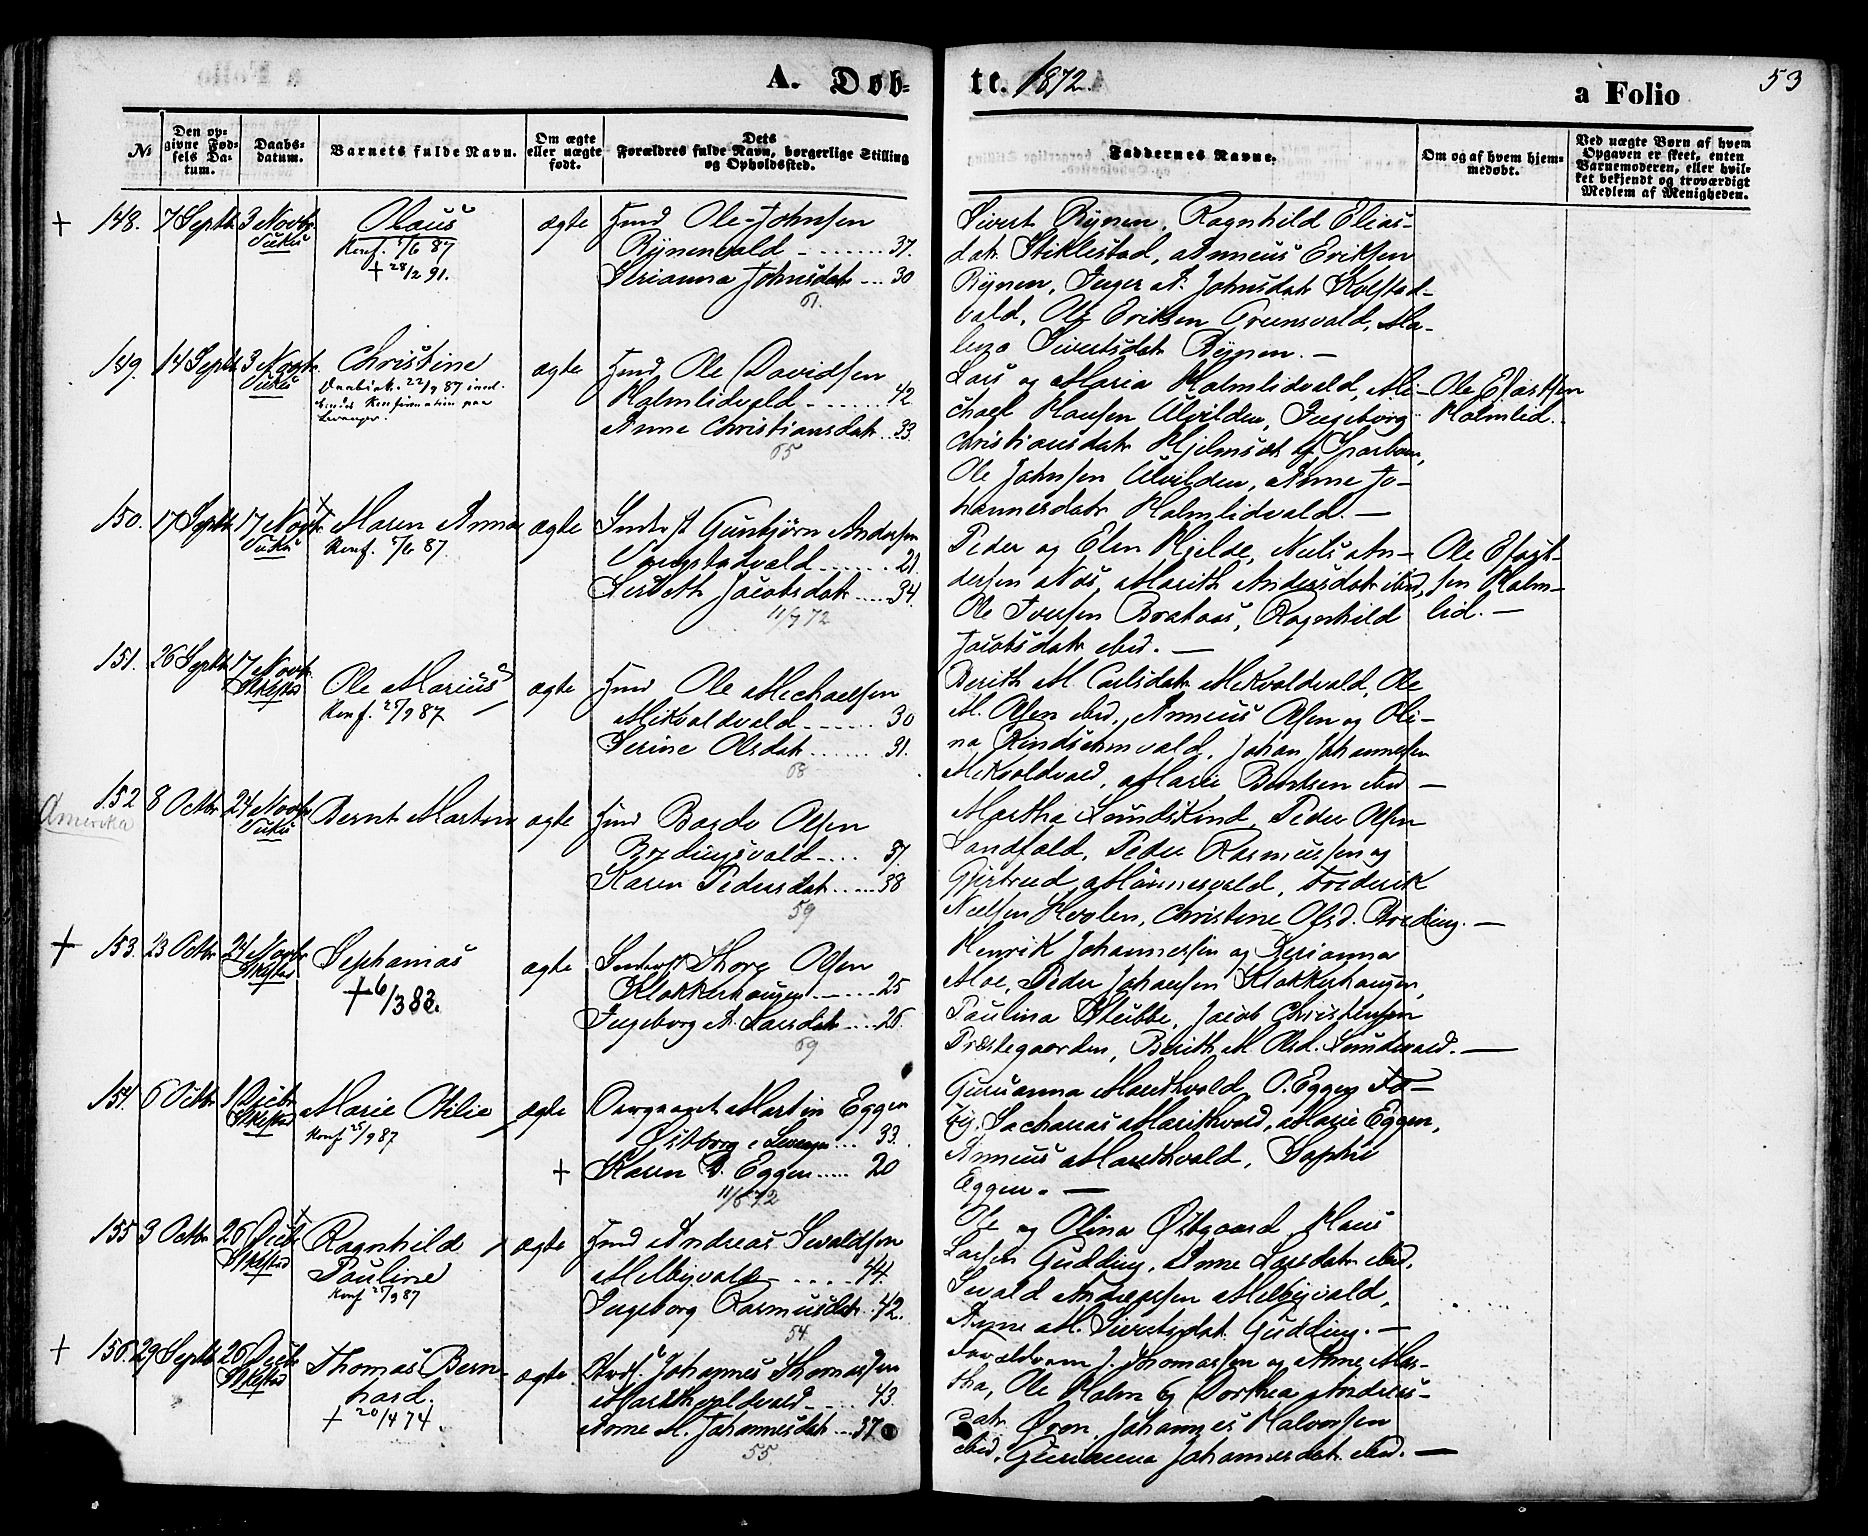 A. Døb-
te. 1872.
a Folio
53
№
Den op-
givne Fød-
sels Da-
tum.
Daabs-
datum.
Barnets fulde Navn.
Om ægte
eller uægte
født.
Dets
Forældres fulde Navn, borgerlige Stilling
og Opholdssted.
Faddernes Navne.
Om og af hvem hjem-
medøbt.
Ved uægte Børn af hvem
Opgaven er skeet, enten
Barnemoderen, eller hvil-
ket bekjendt og troværdigt
Medlem af Menigheden.
+ 148. 7 Septbr 3 Novbr
Vuku
Olaus
Konf. 5/6 87
+ 28/2 91.
ægte
Hmd Ole Johnsen
Rynenvald 37.
Serianna Johnsdatr 30
61.
Sivert Rynen, Ragnhild Elias-
datr Stiklestad, Anneus Eriksen
Rynen, Inger A. Johnsdatr Kolstad-
vald, Ole Eriksen Grunsvald, Ma-
Sivertsdatr Rynen. —
149. 14 Septbr 3 Novbr
Vuku
Christine
22/9 87
Konfirmation paa
Levanger.
ægte
Hmd Ole Davidsen
Holmlidvald 42
Anne Christiansdatr 33.
65
Lars og Maria Holmlidvald, Mi-
chael Hansen Ulvilden, Ingeborg
Christiansdatr Hjelmset af Sparbuen,
Ole Johnsen Ulvilden, Anne Jo-
hannesdatr Holmlidvald. —
Ole
Holmlid.
150. 17 Septbr 17 Novbr
Vuku
Maren Anna
Konf. 5/6 87.
ægte
Gunbjørn Andersen
21.
Lisbeth Jacobsdatr 34.
11/7 72
Peder og Elen Hjelde, Niels An-
dersen Næs, Marith Andersdatr ibid,
Ole Iversen Brataas, Ragnhild
Jacobsdatr ibid. —
Ole
sen Holm-
lid. —
151. 26 Septbr 17 Novbr
Stiklestad
Ole Marius
Konf. 25/9 87
ægte
Hmd Ole Michaelsen
Mikvoldvald 30
Serine Olsdatr 31.
68
Berith M. Carlsdatr Mikvoldvald, Ole
M. Olsen ibid, Anneus Olsen og Oli-
na Rindsemvald, Johan Johannesen
Mikvoldvald, Marie Bentsen ibid —
152 8 Octbr 24 Novbr
Amerika
Vuku
Bernt Martin
ægte
Hmd Bardo Olsen
Bredingsvald 37.
Karen Pedersdatr 38
59
Martha Sundskind, Peder Olsen
Landfald, Peder Rasmussen og
Gjertrud Mønnesvald, Frederik
Nielsen Hvolen, Christine Olsd. Breding. —
+ 153. 23 Octbr 24 Novbr
Stiklestad
Sephanias
+ 6/3 83.
ægte
Thore Olsen
Klokkerhaugen 25
Ingeborg A. Larsdatr 26.
69
Henrik Johannessen og Serianna
Moe, Peder Johansen Klokkerhaugen,
Paulina Stubbe, Jacob Christensen
Præstegaarden, Berith M. Olsd. Sundevald. —
154. 6 Octbr 1 Decbr
Stiklestad
Marie Otilie
Konf 25/9 87
ægte
Martin Eggen
Østborg i Levanger 33.
+ Karen B. Eggen 20
11/6 72
Guruanna Marithvold, O. Eggen
Sacharias Marithvold, Marie Eggen,
Anneus Marithvold, Sophie
Eggen. —
155 3 Octbr 26 Decbr
Stiklestad
Ragnhild
Pauline
Konf 25/9 87
ægte
Hmd Andreas Sevaldsen
Melbyvald 44.
Ingeborg Rasmusdatr 42.
54
Ole og Olina Østgaard, Hans
Larsen Gudding, Anne Larsdatr ibid,
Sevald Andreassen Melbyvald,
Anne M. Sivertsdatr Gudding. —
+ 156. 29 Septbr 26 Decbr
Stiklestad
Thomas Bern-
hard.
+ 20/4 74.
ægte
Johannes Thomassen
Marithvoldvald 43.
Anne M. Johannesdatr 37.
55.
Forældrene J. Thomassen og Anne Mar-
tha, Ole Holm og Dorthea Anders-
datr Øren, Johannes Halvorsen
ibid, Gurianna Johannesdatr ibid. —